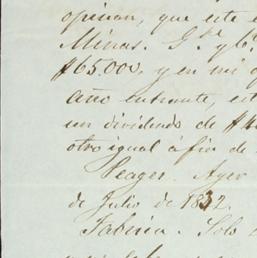 opinan, que este
Minas. G.ª y C.ª
$65.000, y en mi
año entrante, est
un dividendo de $
otro igual á fin de
Peages. Ayer
de Julio de 1832.
Fabrica. Solo